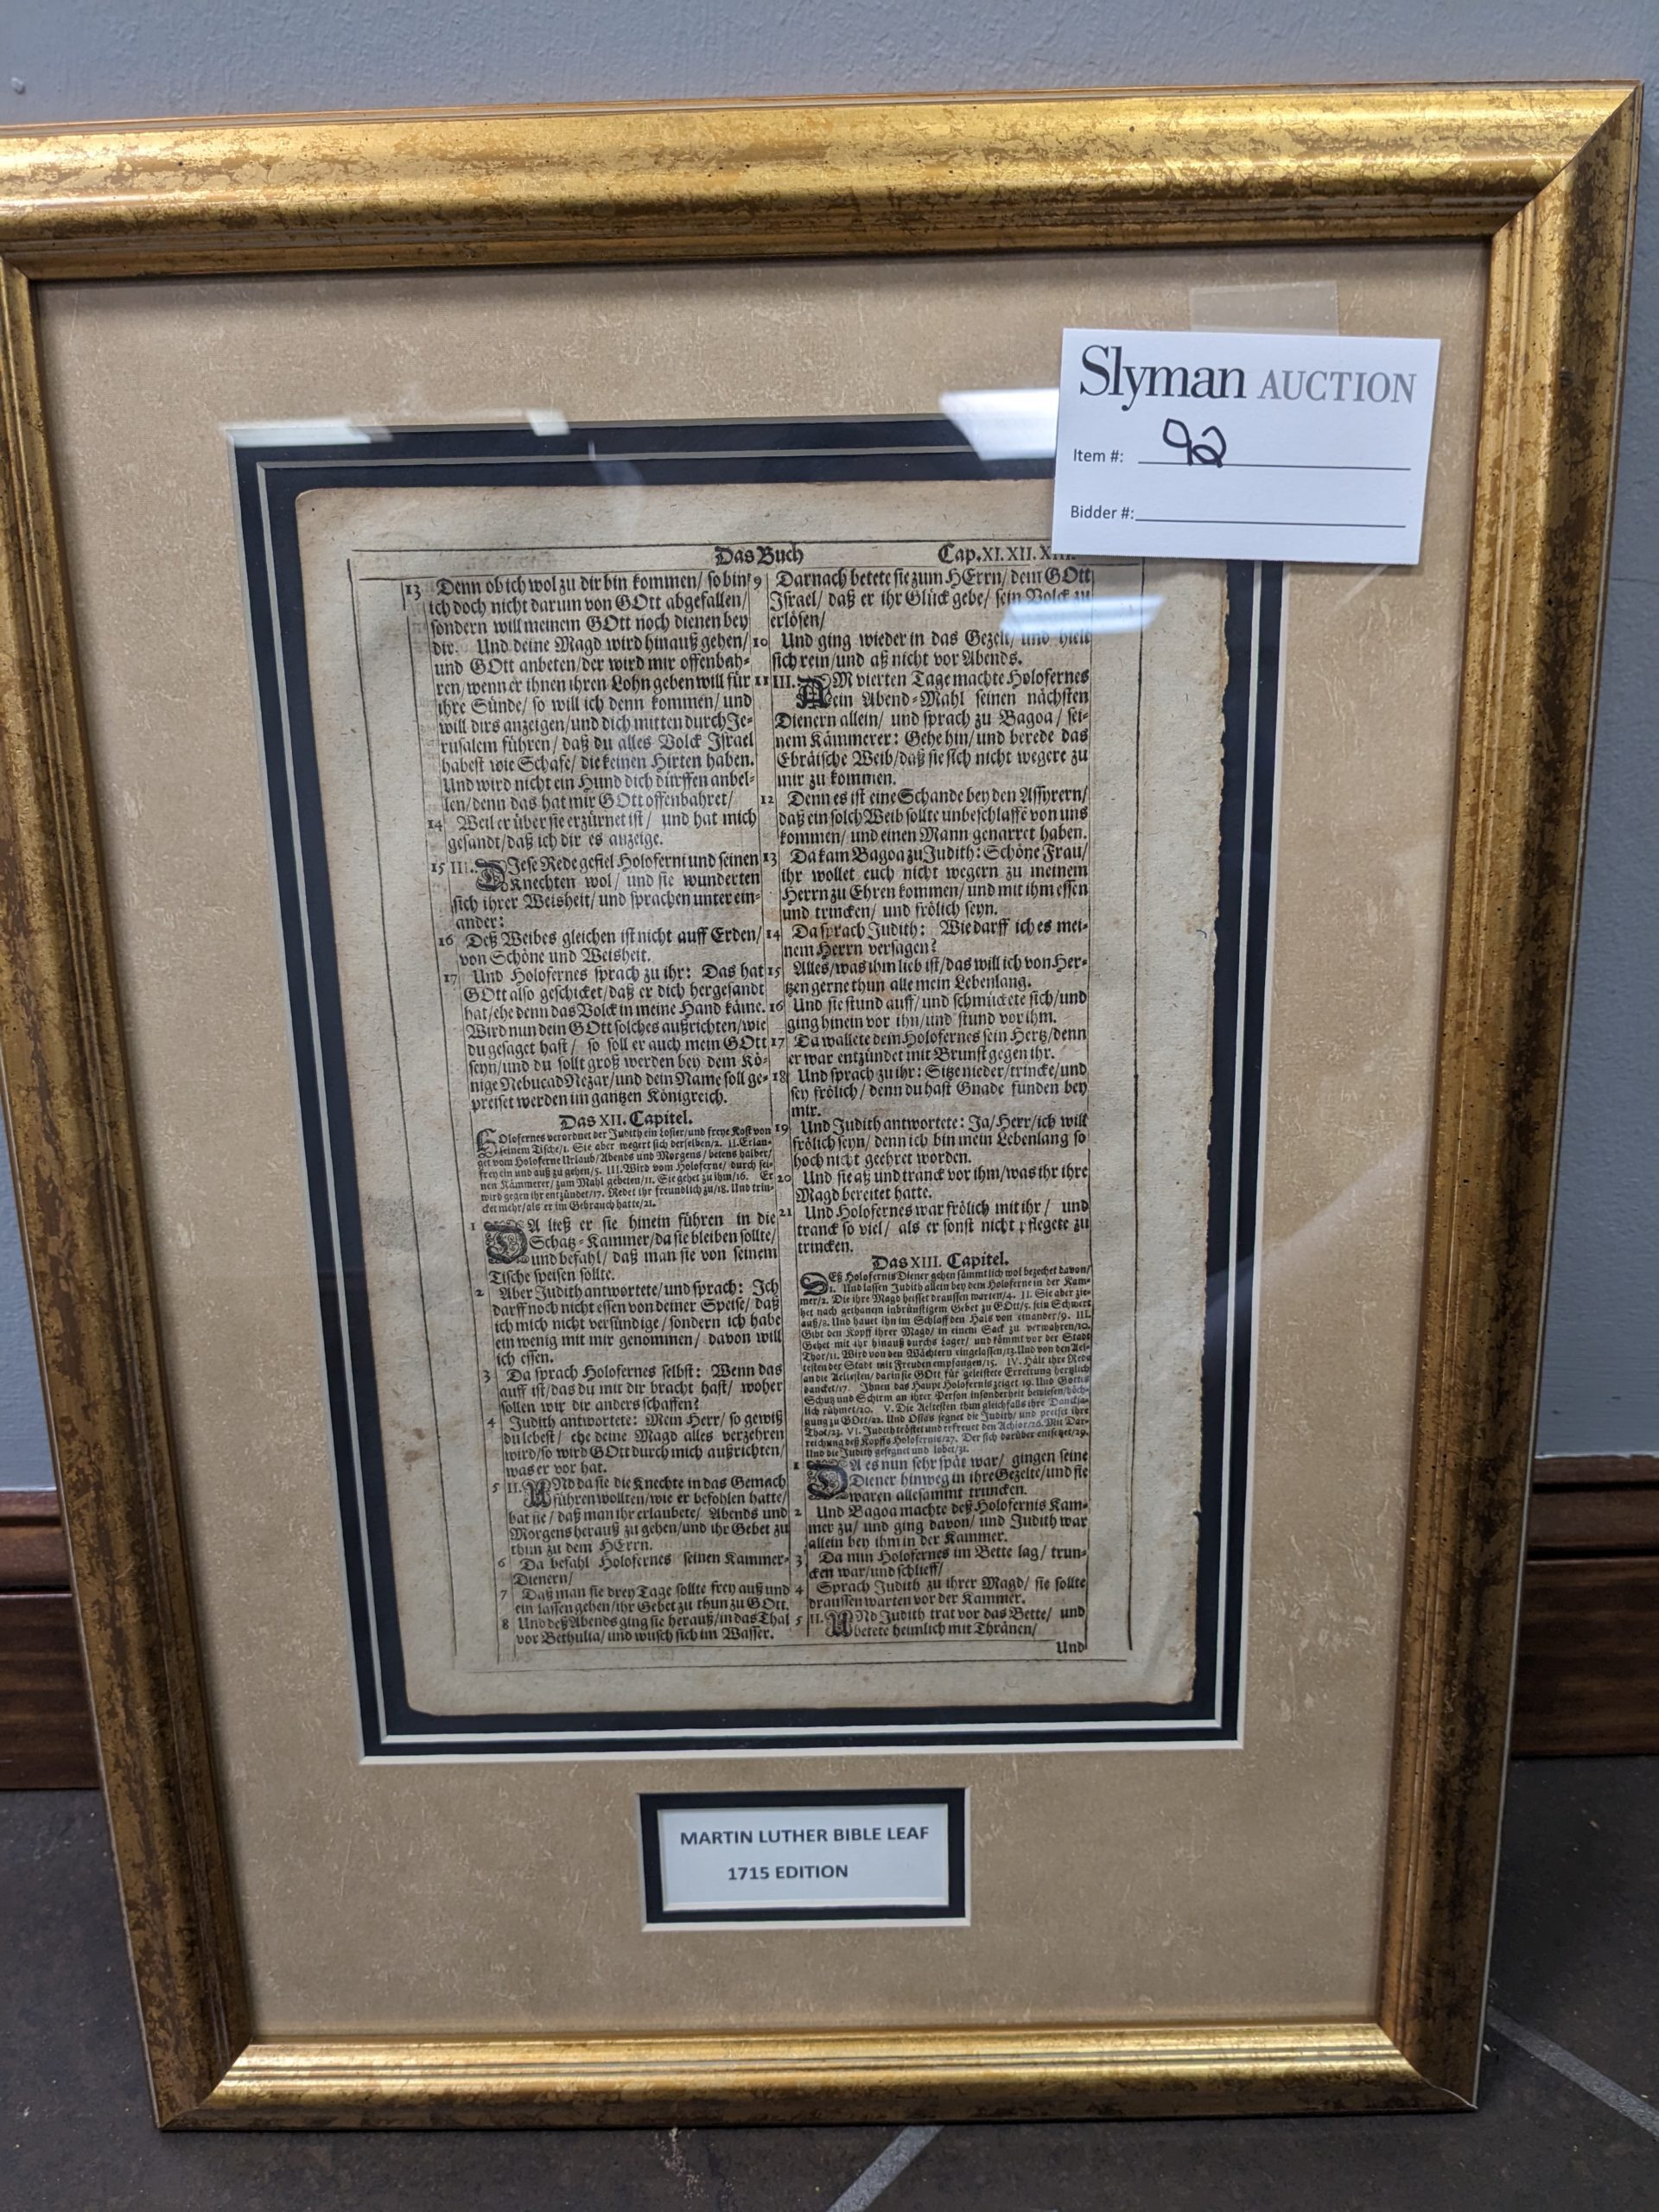 Slyman AUCTION
Item #: 92
Bidder #:
Das Buch
Cap.XI.XII.
13 Denn ob ich wol zu dir bin kommen/ so bin
ich doch nicht darum von GOtt abgefallen/
sondern will meinem GOtt noch dienen bey
dir. Und deine Magd wird hinauß gehen/
und GOtt anbeten/der wird mir offenbah-
ren/wenn er ihnen ihren Lohn geben will für
ihre Sünde/ so will ich denn kommen/ und
will dirs anzeigen/und dich mitten durch Je-
rusalem führen/ daß du alles Volck Israel
habest wie Schafe/ die keinen Hirten haben.
Und wird nicht ein Hund dich dürffen anbel-
len/denn das hat mir GOtt offenbahret/
14 Weil er über sie erzürnet ist/ und hat mich
gesandt/daß ich dir es anzeige.
15 III. DIese Rede gefiel Holoferni und seinen
Knechten wol/ und sie wunderten
sich ihrer Weisheit/ und sprachen unter ein-
ander:
16 Deß Weibes gleichen ist nicht auff Erden/
von Schöne und Weisheit.
17 Und Holofernes sprach zu ihr: Das hat
GOtt also geschicket/daß er dich hergesandt
hat/ehe denn das Volck in meine Hand käme.
Wird nun dein GOtt solches außrichten/wie
du gesaget hast/ so soll er auch mein GOtt
seyn/und du sollt groß werden bey dem Kö-
nige NebucadNezar/und dein Name soll ge-
preiset werden im gantzen Königreich.
Das XII. Capitel.
HOlofernes verordnet der Judith ein Losier/und freye Kost von
seinem Tische/1. Sie aber wegert sich derselben/2. II. Erlan-
get vom Holoferne Urlaub/Abends und Morgens/ betens halber/
frey ein und auß zu gehen/5. III. Wird vom Holoferne/ durch sei-
nen Kämmerer/ zum Mahl gebeten/11. Sie gehet zu ihm/16. Er
wird gegen ihr entzündet/17. Redet ihr freundlich zu/18. Und trin-
cket mehr/als er im Gebrauch hatte/21.
1 DA ließ er sie hinein führen in die
Schatz-Kammer/da sie bleiben sollte/
und befahl/ daß man sie von seinem
Tische speisen sollte.
2 Aber Judith antwortete/und sprach: Ich
darff noch nicht essen von deiner Speise/ daß
ich mich nicht versündige/ sondern ich habe
ein wenig mit mir genommen/ davon will
ich essen.
3 Da sprach Holofernes selbst: Wenn das
auff ist/das du mit dir bracht hast/ woher
sollen wir dir anders schaffen?
4 Judith antwortete: Mein Herr/ so gewiß
du lebest/ ehe deine Magd alles verzehren
wird/so wird GOtt durch mich außrichten/
was er vor hat.
5 II. UNd da sie die Knechte in das Gemach
führen wollten/wie er befohlen hatte/
bat sie/ daß man ihr erlaubete/ Abends und
Morgens herauß zu gehen/und ihr Gebet zu
thun zu dem HErrn.
6 Da befahl Holofernes seinen Kammer-
Dienern/
7 Daß man sie drey Tage sollte frey auß und
ein lassen gehen/ihr Gebet zu thun zu GOtt.
8 Und deß Abends ging sie herauß/in das Thal
vor Bethulia/ und wusch sich im Wasser.
9 Darnach betete sie zum HErrn/ dem GOtt
Israel/ daß er ihr Glück gebe/ sein Volck zu
erlösen/
10 Und ging wieder in das Gezelt/ und hielt
sich rein/und aß nicht vor Abends.
11 III. AM vierten Tage machte Holofernes
ein Abend-Mahl seinen nächsten
Dienern allein/ und sprach zu Bagoa/ sei-
nem Kämmerer: Gehe hin/ und berede das
Ebräische Weib/daß sie sich nicht wegere zu
mir zu kommen.
12 Denn es ist eine Schande bey den Assyrern/
daß ein solch Weib sollte unbeschlaffē von uns
kommen/ und einen Mann genarret haben.
13 Da kam Bagoa zu Judith: Schöne Frau/
ihr wollet euch nicht wegern zu meinem
Herrn zu Ehren kommen/ und mit ihm essen
und trincken/ und frölich seyn.
14 Da sprach Judith: Wie darff ich es mei-
nem Herrn versagen?
15 Alles/was ihm lieb ist/das will ich von Her-
tzen gerne thun alle mein Lebenlang.
16 Und sie stund auff/und schmückete sich/und
ging hinein vor ihn/und stund vor ihm.
17 Da wallete dem Holofernes sein Hertz/denn
er war entzündet mit Brunst gegen ihr.
18 Und sprach zu ihr: Sitze nieder/trincke/und
sey frölich/ denn du hast Gnade funden bey
mir.
19 Und Judith antwortete: Ja/Herr/ich will
frölich seyn/ denn ich bin mein Lebenlang so
hoch nicht geehret worden.
20 Und sie aß und tranck vor ihm/was ihr ihre
Magd bereitet hatte.
21 Und Holofernes war frölich mit ihr/ und
tranck so viel/ als er sonst nicht pflegete zu
trincken.
Das XIII. Capitel.
DEß Holofernis Diener gehen sämmtlich wol bezechet davon/
1. Und lassen Judith allein bey dem Holoferne in der Kam-
mer/2. Die ihre Magd heisset draussen warten/4. II. Sie aber zie-
het nach gethanem inbrünstigem Gebet zu GOtt/5. sein Schwert
auß/8. Und hauet ihm im Schlaff den Hals von einander/9. III.
Gibt den Kopff ihrer Magd/ in einem Sack zu verwahren/10.
Gehet mit ihr hinauß durchs Lager/ und kömmt vor der Stadt
Thor/11. Wird von den Wächtern eingelassen/13. Und von den Ael-
testen der Stadt mit Freuden empfangen/15. IV. Hält ihre Rede
an die Aeltesten/ darin sie GOtt für geleistete Errettung hertzlich
dancket/17. Ihnen das Haupt Holofernis zeiget 19. Und Gottes
Schutz und Schirm an ihrer Person insonderheit bewiesen/höch-
lich rühmet/20. V. Die Aeltesten thun gleichfalls ihre Dancksa-
gung zu GOtt/22. Und Osias segnet die Judith/ und preiset ihre
That/23. VI. Judith tröstet und erfreuet den Achior/26. Mit Dar-
reichung deß Kopffs Holofernis/27. Der sich darüber entsetzet/29.
Und die Judith gesegnet und lobet/31.
1 DA es nun sehr spät war/ gingen seine
Diener hinweg in ihre Gezelte/und sie
waren allesammt truncken.
2 Und Bagoa machte deß Holofernis Kam-
mer zu/ und ging davon/ und Judith war
allein bey ihm in der Kammer.
3 Da nun Holofernes im Bette lag/ trun-
cken war/und schlieff/
4 Sprach Judith zu ihrer Magd/ sie sollte
draussen warten vor der Kammer.
5 II. UNd Judith trat vor das Bette/ und
betete heimlich mit Thränen/
Und
MARTIN LUTHER BIBLE LEAF
1715 EDITION